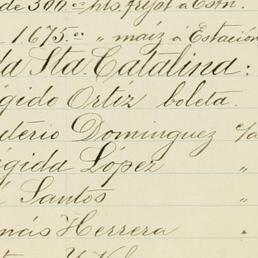 de 300.00 hls. frijol á Estn.
1.675.00 " maíz á Estación
da Sta Catalina:
ígido Ortíz boleta.
uterio Dominguez c/a
ígida López "
é Santos "
más Herrera "